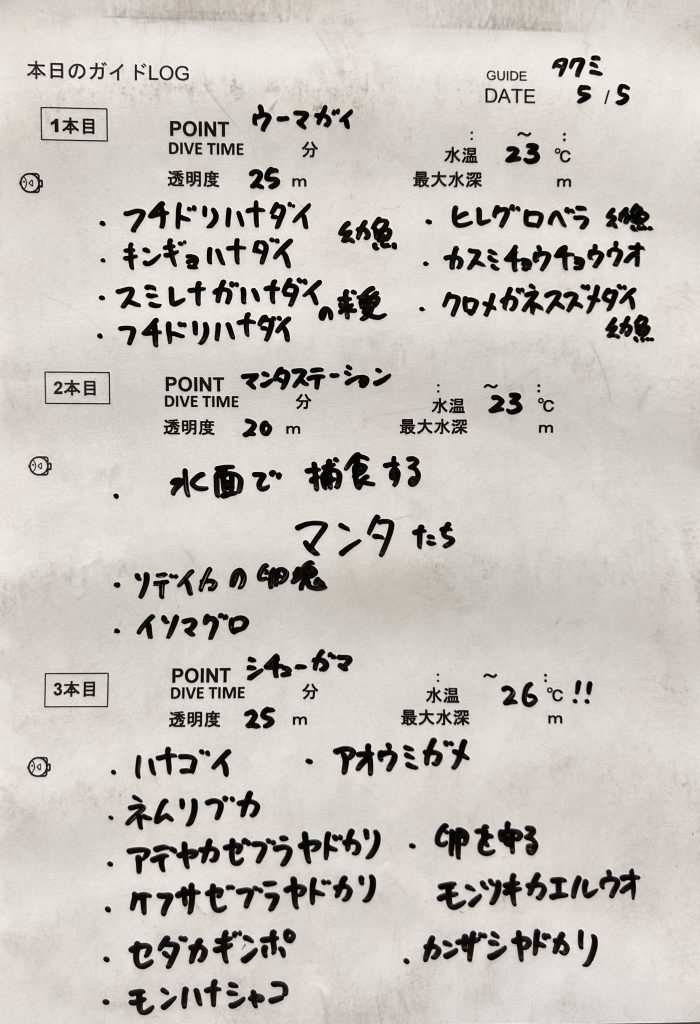 本日のガイドLOG
GUIDE タクミ
DATE 5 / 5
1本目
POINT ウーマガイ
: ～ :
DIVE TIME 分 水温 23 ℃
透明度 25 m 最大水深 m
・フチドリハナダイ 幼魚 ・ヒレグロベラ 幼魚
・キンギョハナダイ ・カスミチョウチョウウオ
・スミレナガハナダイの求愛 ・クロメガネスズメダイ
・フチドリハナダイ 幼魚
2本目
POINT マンタステーション : ～ :
DIVE TIME 分 水温 23 ℃
透明度 20 m 最大水深 m
・水面で捕食する
マンタたち
・ソデイカの卵塊
・イソマグロ
3本目
POINT シチューガマ : ～ :
DIVE TIME 分 水温 26 ℃!!
透明度 25 m 最大水深 m
・ハナゴイ ・アオウミガメ
・ネムリブカ
・アデヤカゼブラヤドカリ ・卵を守る
・ケフサゼブラヤドカリ モンツキカエルウオ
・セダカギンポ ・カンザシヤドカリ
・モンハナシャコ